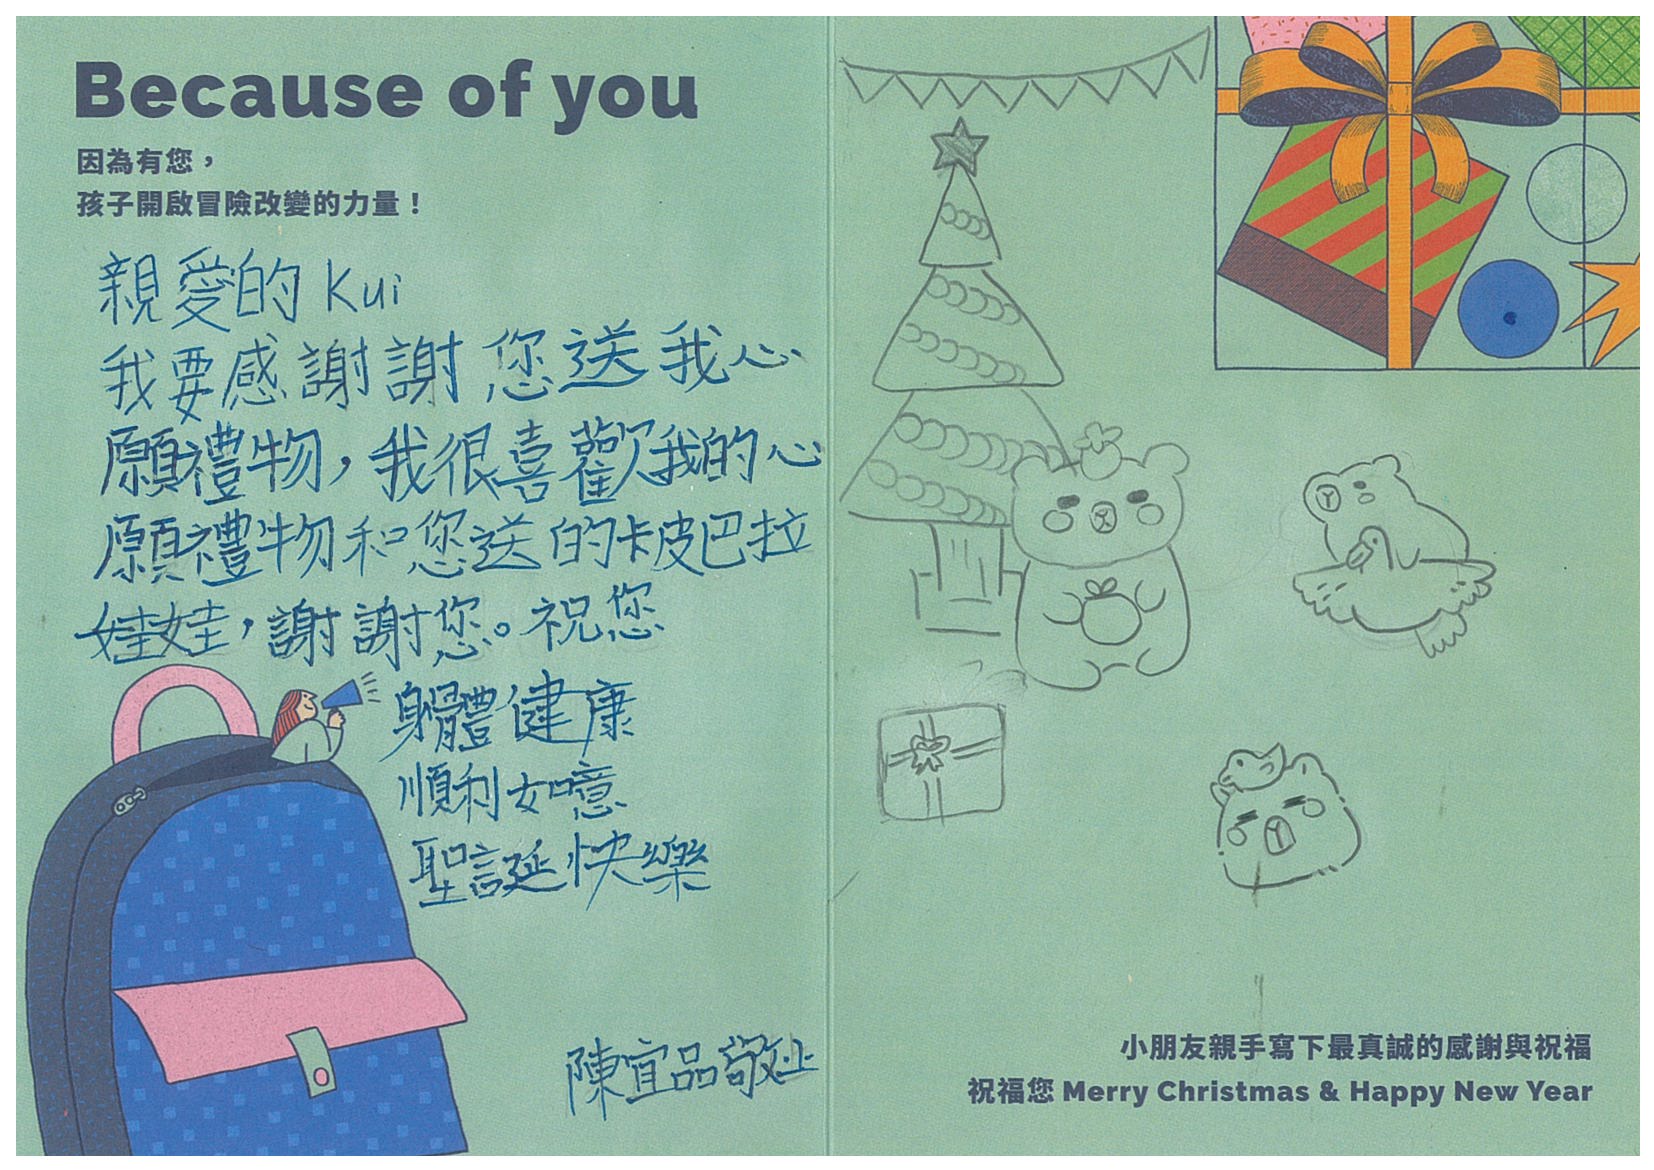 Because of you
因為有您，
孩子開啟冒險改變的力量！
親愛的 Kui
我要感謝謝您送我心
願禮物，我很喜歡我的心
願禮物和您送的卡皮巴拉
娃娃，謝謝您。祝您
身體健康
順利如噫
聖誕快樂
陳宜品敬上
小朋友親手寫下最真誠的感謝與祝福
祝福您 Merry Christmas & Happy New Year